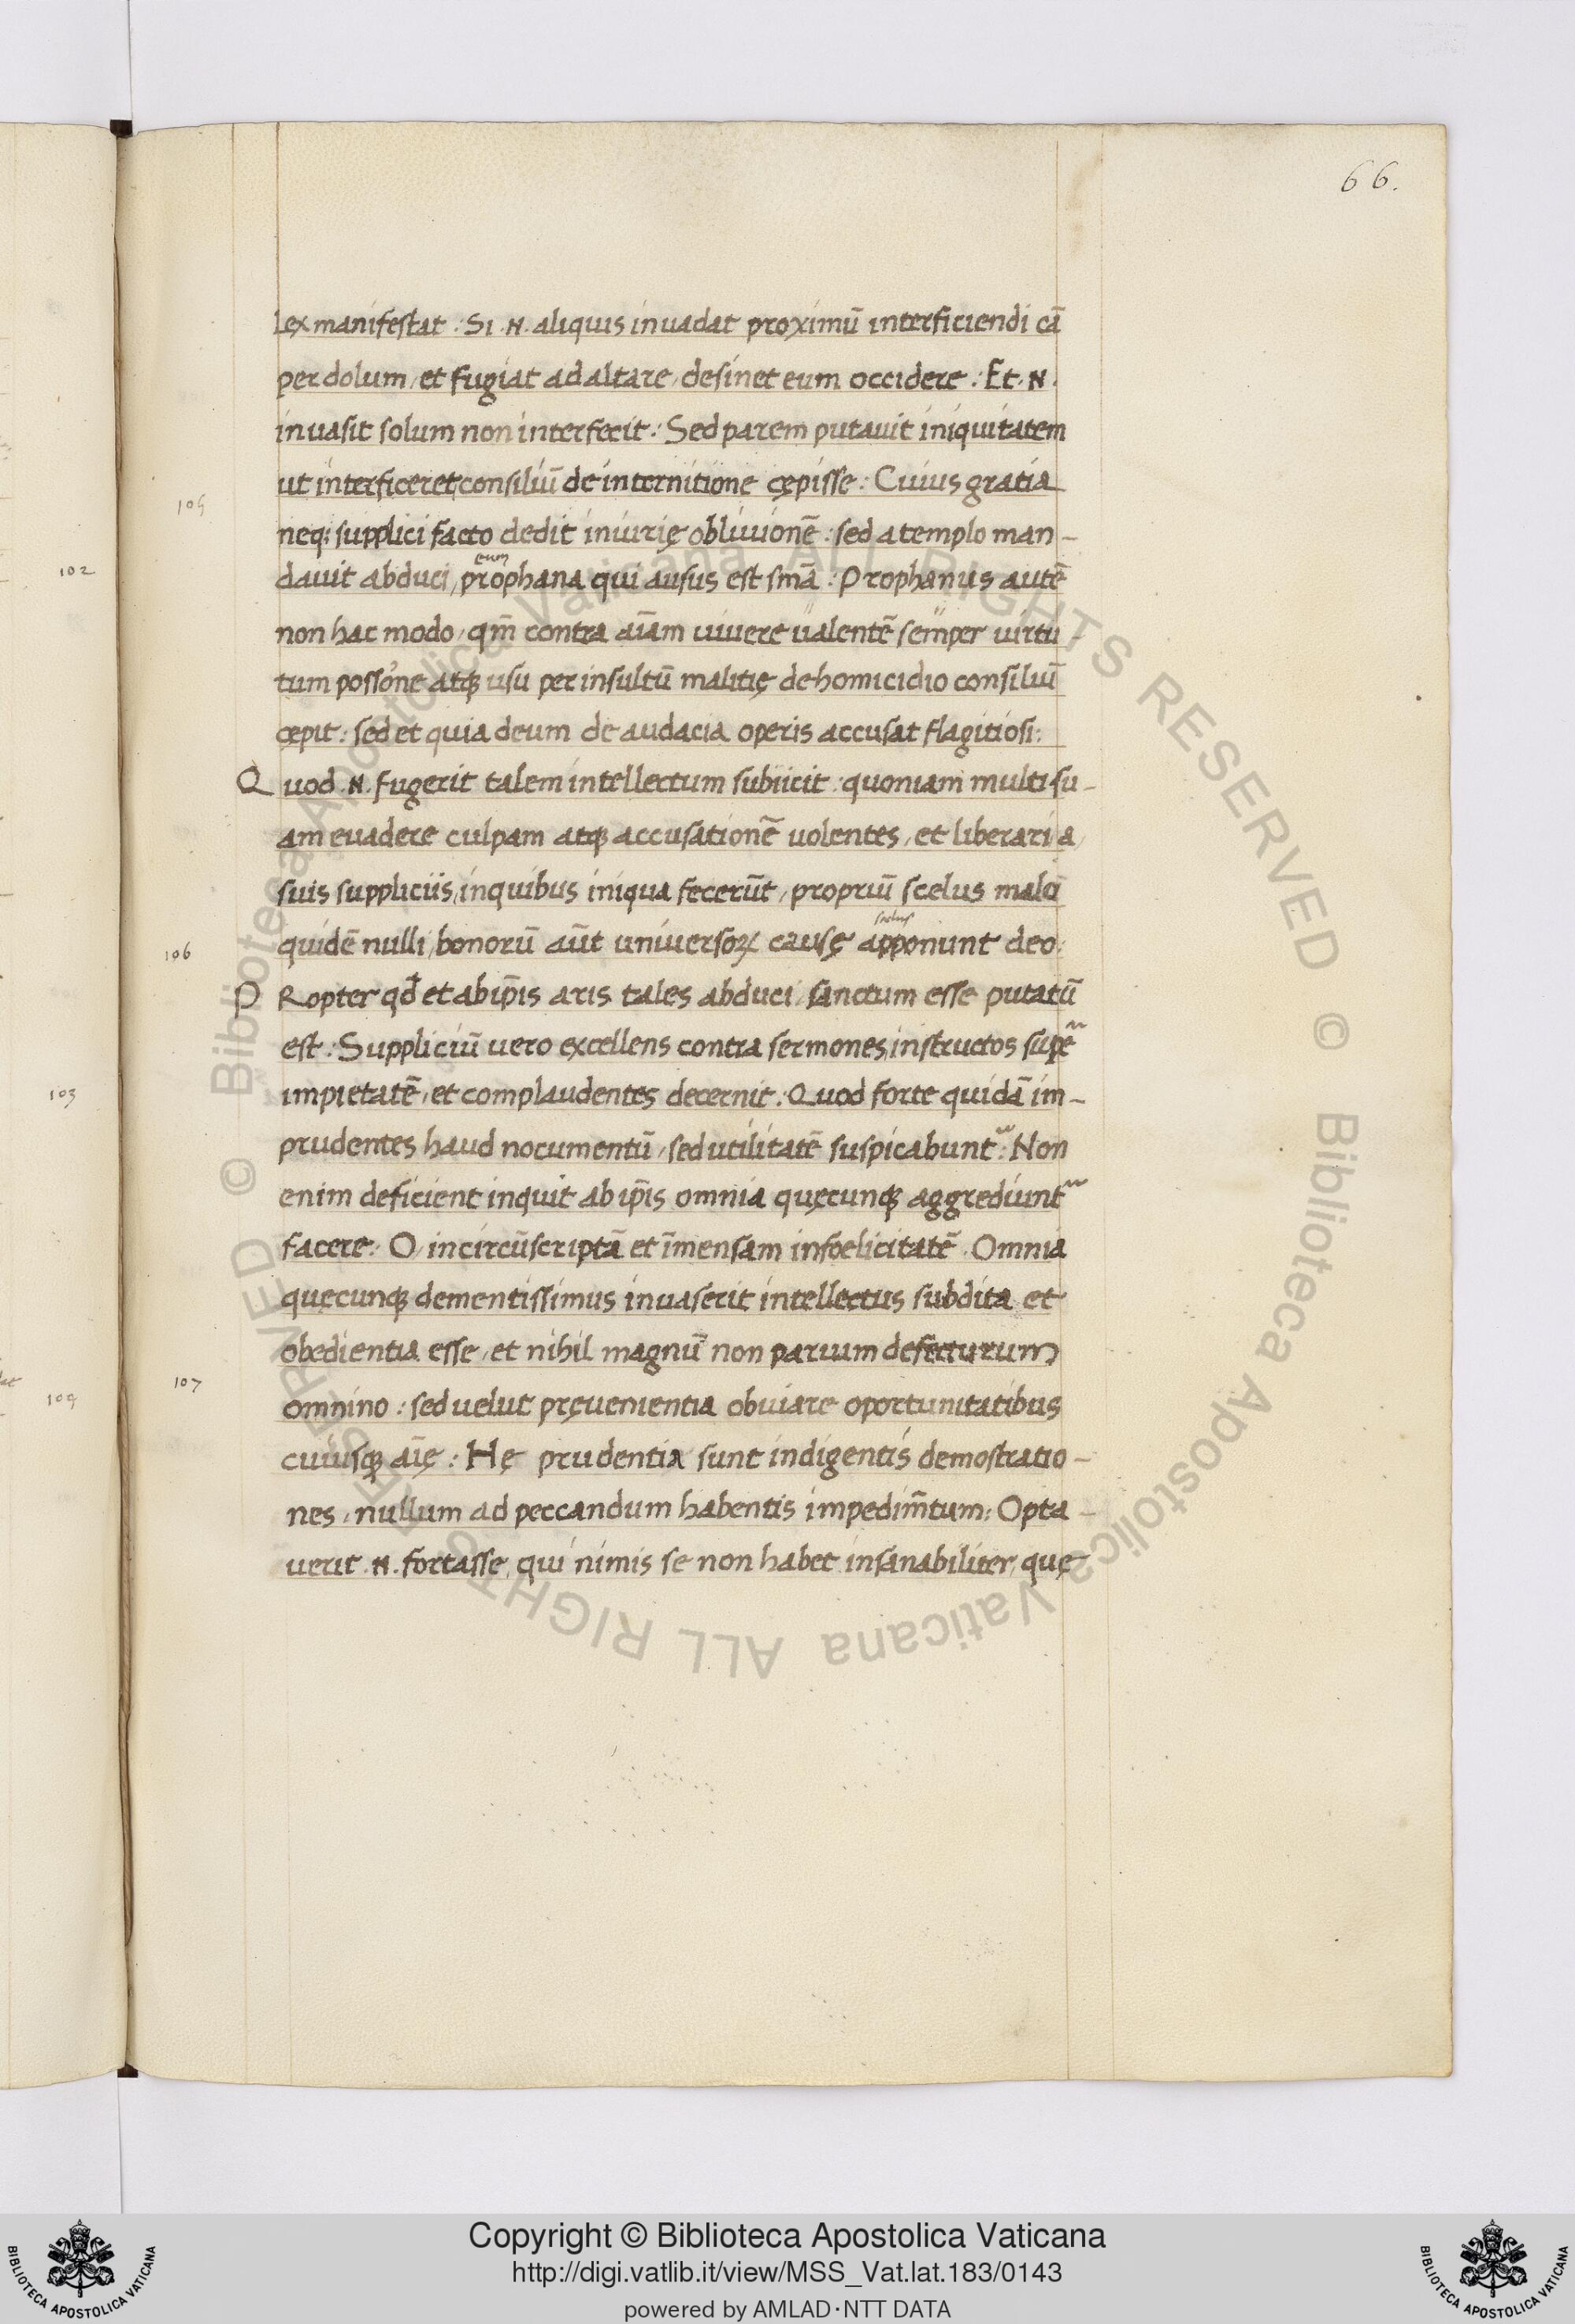 66.
lex manifestat : Si .N. aliquis inuadat proximū interficiendi cā
per dolum, et fugiat ad altare, desinet eum occidere : Et .N.
inuasit solum non interfecit : Sed parem putauit iniquitatem
ut interficeret, consiliū de internitione cępisse : Cuius gratia
105
neq; supplici facto dedit iniurię obliuionē : sed a templo man-
eum
102
dauit abduci, prophana qui ausus est smā : Prophanus autē
non hac modo, qm̄ contra aīam uiuere ualentē semper uirtu-
tum possōne atq; usu per insultū malitię de homicidio consiliū
cępit : sed et quia deum de audacia operis accusat flagitiosi :
Quod .N. fugerit talem intellectum subiicit : quoniam multi su-
am euadere culpam atq; accusationē uolentes, et liberari a
suis suppliciis, in quibus iniqua fecerūt, propriū scelus mali
scelus
106
quidē nulli, bonorū aūt uniuersoꝝ causę apponunt deo.
PRopter qd̄ et ab ip̄is aris tales abduci, sanctum esse putatū
est : Suppliciū uero excellens contra sermones instructos sup̄
103
impietatē, et complaudentes decernit : Quod forte quidā im-
prudentes haud nocumentū, sed utilitatē suspicabunt᷒ : Non
enim deficient inquit ab ip̄is omnia quęcunq; aggrediunt᷒
facere : O, incircūscriptā et īmensam infoelicitatē . Omnia
quęcunq; dementissimus inuaserit intellectus subdita et
obedientia esse, et nihil magnū non paruum defecturum
107
109
omnino : sed uelut pręuenientia obuiare oportunitatibus
cuiusq; aīę : Hę prudentia sunt indigentis demostratio-
nes, nullum ad peccandum habentis impedim̄tum : Opta-
uerit .N. fortasse, qui nimis se non habet insanabiliter, quę
© Biblioteca Apostolica Vaticana ALL RIGHTS RESERVED © Biblioteca Apostolica Vaticana ALL RIGHTS RESERVED
BIBLIOTECA APOSTOLICA VATICANA
Copyright © Biblioteca Apostolica Vaticana
http://digi.vatlib.it/view/MSS_Vat.lat.183/0143
powered by AMLAD·NTT DATA
BIBLIOTECA APOSTOLICA VATICANA